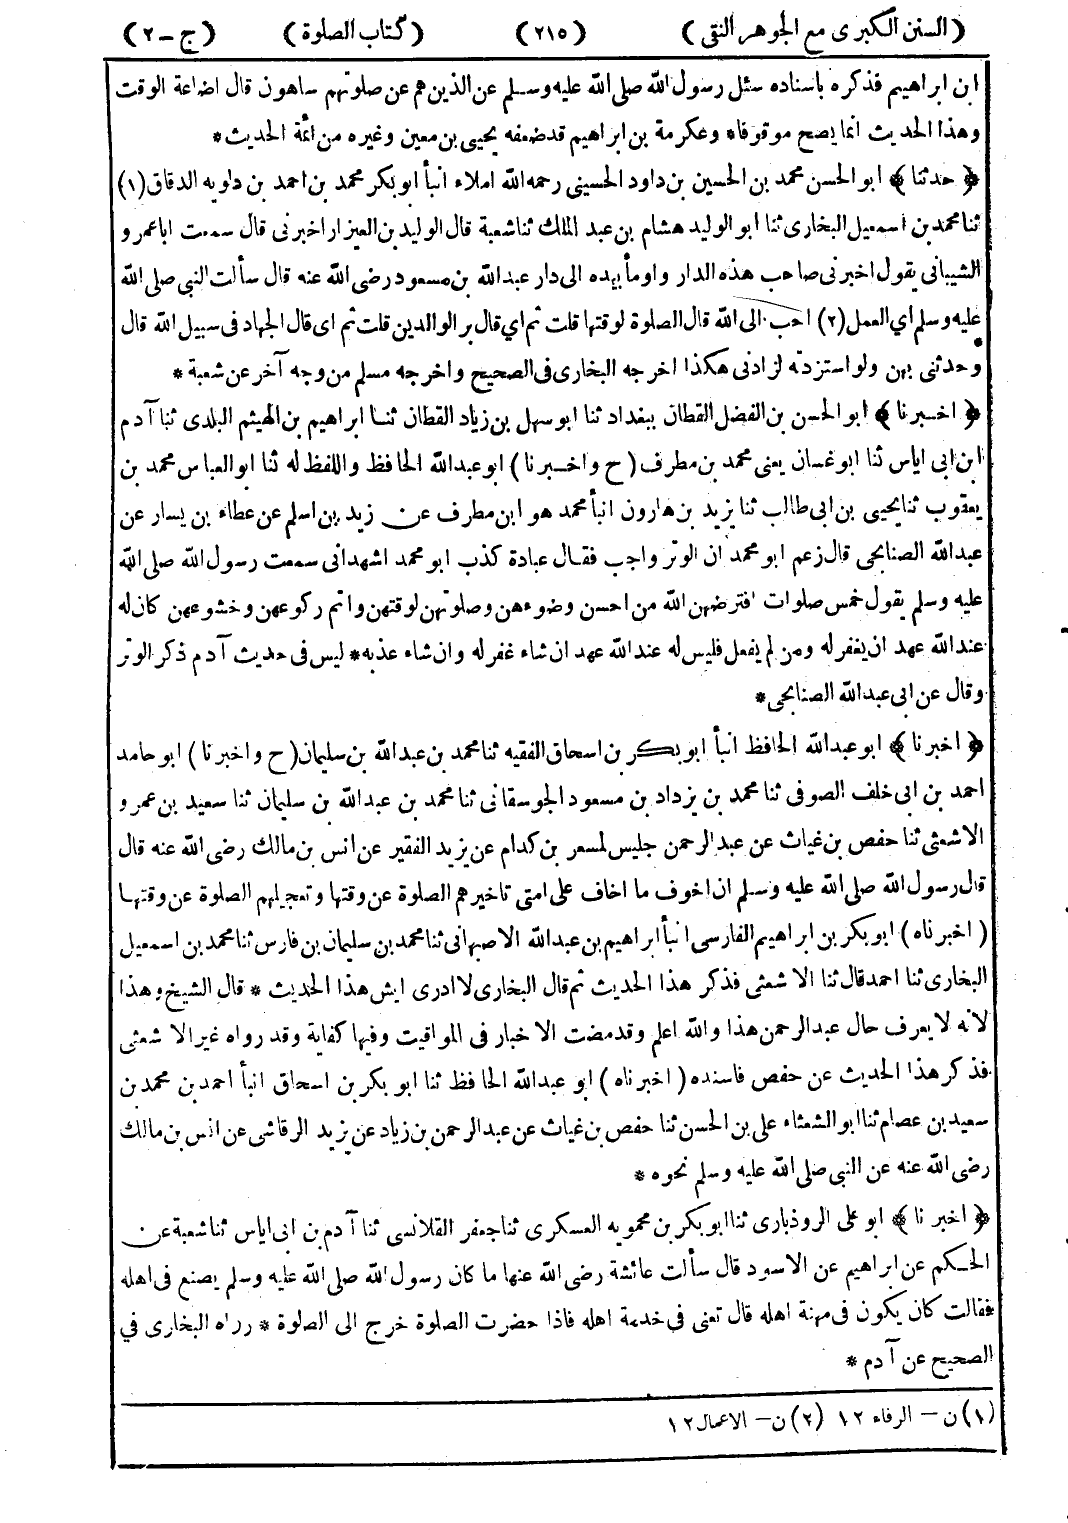 (السنن الكبرى مع الجوهر النقى) (٢١٥) (كتاب الصلوة) (ج - ٢)
ابن ابراهيم فذكره باسناده سئل رسول الله صلى الله عليه وسلم عن الذين هم عن صلوتهم ساهون قال اضاعة الوقت
وهذا الحديث انما يصح موقوفا * وعكرمة بن ابراهيم قد ضعفه يحيى بن معين وغيره من ائمة الحديث *
﴿ حدثنا ﴾ ابو الحسن محمد بن الحسين بن داود الحسينى رحمه الله املاء انبأ ابو بكر محمد بن احمد بن دلويه الدقاق (١)
ثنا محمد بن اسمعيل البخارى ثنا ابو الوليد هشام بن عبد الملك ثنا شعبة قال الوليد بن العيزار اخبرنى قال سمعت ابا عمرو
الشيبانى يقول اخبرنى صاحب هذه الدار واومأ بيده الى دار عبد الله بن مسعود رضى الله عنه قال سألت النبى صلى الله
عليه وسلم أي العمل (٢) احب الى الله قال الصلوة لوقتها قلت ثم اي قال بر الوالدين قلت ثم اى قال الجهاد فى سبيل الله قال
وحدثنى بهن ولو استزدته لزادنى هكذا اخرجه البخارى فى الصحيح واخرجه مسلم من وجه آخر عن شعبة *
﴿ اخبرنا ﴾ ابو الحسن بن الفضل القطان ببغداد ثنا ابو سهل بن زياد القطان ثنا ابراهيم بن الهيثم البلدى ثنا آدم
ابن ابى اياس ثنا ابو غسان يعنى محمد بن مطرف (ح واخبرنا) ابو عبد الله الحافظ واللفظ له ثنا ابو العباس محمد بن
يعقوب ثنا يحيى بن ابى طالب ثنا يزيد بن هارون انبأ محمد هو ابن مطرف عن زيد بن اسلم عن عطاء بن يسار عن
عبد الله الصنابحى قال زعم ابو محمد ان الوتر واجب فقال عبادة كذب ابو محمد اشهد انى سمعت رسول الله صلى الله
عليه وسلم يقول خمس صلوات افترضهن الله من احسن وضوءهن وصلوتهن لوقتهن واتم ركوعهن وخشوعهن كان له
عند الله عهد ان يغفر له ومن لم يفعل فليس له عند الله عهد ان شاء غفر له وان شاء عذبه * ليس فى حديث آدم ذكر الوتر
وقال عن ابى عبد الله الصنابحى *
﴿ اخبرنا ﴾ ابو عبد الله الحافظ انبأ ابو بكر بن اسحاق الفقيه ثنا محمد بن عبد الله بن سليمان (ح واخبرنا) ابو حامد
احمد بن ابى خلف الصوفى ثنا محمد بن يزداد بن مسعود الجوسقانى ثنا محمد بن عبد الله بن سليمان ثنا سعيد بن عمرو
الاشعثى ثنا حفص بن غياث عن عبد الرحمن جليس لمسعر بن كدام عن يزيد الفقير عن انس بن مالك رضى الله عنه قال
قال رسول الله صلى الله عليه وسلم ان اخوف ما اخاف على امتى تاخيرهم الصلوة عن وقتها وتعجيلهم الصلوة عن وقتها
(اخبرناه) ابو بكر بن ابراهيم الفارسى انبأ ابراهيم بن عبد الله الاصبهانى ثنا محمد بن سليمان بن فارس ثنا محمد بن اسمعيل
البخارى ثنا احمد قال ثنا الاشعثى فذكر هذا الحديث ثم قال البخارى لا ادرى ايش هذا الحديث * قال الشيخ وهذا
لانه لا يعرف حال عبد الرحمن هذا والله اعلم وقد مضت الاخبار فى المواقيت وفيها كفاية وقد رواه غير الاشعثى
فذكر هذا الحديث عن حفص فاسنده (اخبرناه) ابو عبد الله الحافظ ثنا ابو بكر بن اسحاق انبأ احمد بن محمد بن
سعيد بن عصام ثنا ابو الشعثاء على بن الحسن ثنا حفص بن غياث عن عبد الرحمن بن زياد عن يزيد الرقاشى عن انس بن مالك
رضى الله عنه عن النبى صلى الله عليه وسلم نحوه *
﴿ اخبرنا ﴾ ابو على الروذبارى ثنا ابو بكر بن محمويه العسكرى ثنا جعفر القلانسى ثنا آدم بن ابى اياس ثنا شعبة عن
الحكم عن ابراهيم عن الاسود قال سألت عائشة رضى الله عنها ما كان رسول الله صلى الله عليه وسلم يصنع فى اهله
فقالت كان يكون فى مهنة اهله قال تعنى فى خدمة اهله فاذا حضرت الصلوة خرج الى الصلوة * رراه البخارى في
الصحيح عن آدم *
(١) ن - الرفاء ١٢ (٢) ن - الاعمال ١٢